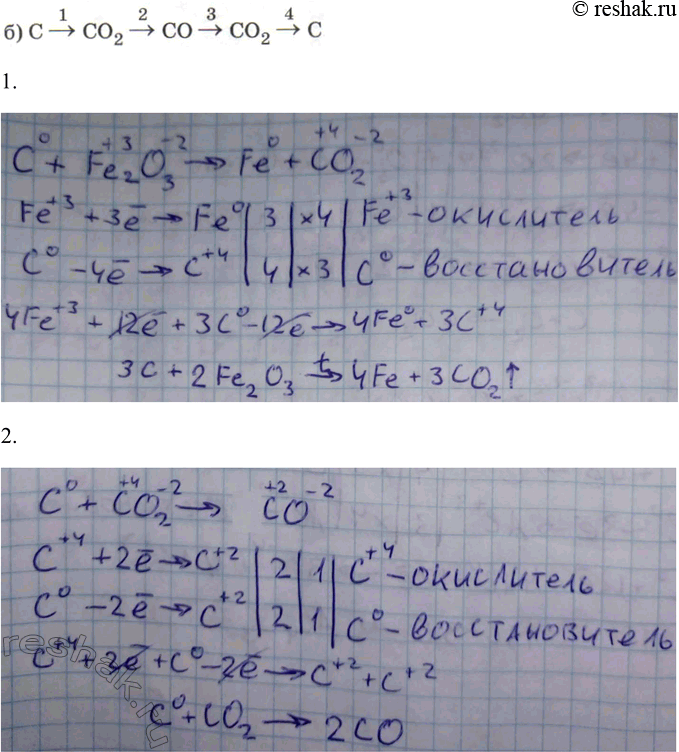 © reshak.ru
б) C →¹ CO₂ →² CO →³ CO₂ →⁴ C
1.
C⁰ + Fe₂⁺³O₃⁻² → Fe⁰ + C⁺⁴O₂⁻²
Fe⁺³ + 3ē → Fe⁰ | 3 | ×4 | Fe⁺³ - окислитель
C⁰ - 4ē → C⁺⁴ | 4 | ×3 | C⁰ - восстановитель
4Fe⁺³ + 12ē + 3C⁰ - 12ē → 4Fe⁰ + 3C⁺⁴
3C + 2Fe₂O₃ →ᵗ 4Fe + 3CO₂↑
2.
C⁰ + C⁺⁴O₂⁻² → C⁺²O⁻²
C⁺⁴ + 2ē → C⁺² | 2 | 1 | C⁺⁴ - окислитель
C⁰ - 2ē → C⁺² | 2 | 1 | C⁰ - восстановитель
C⁺⁴ + 2ē + C⁰ - 2ē → C⁺² + C⁺²
C⁰ + CO₂ → 2CO
reshak.ru